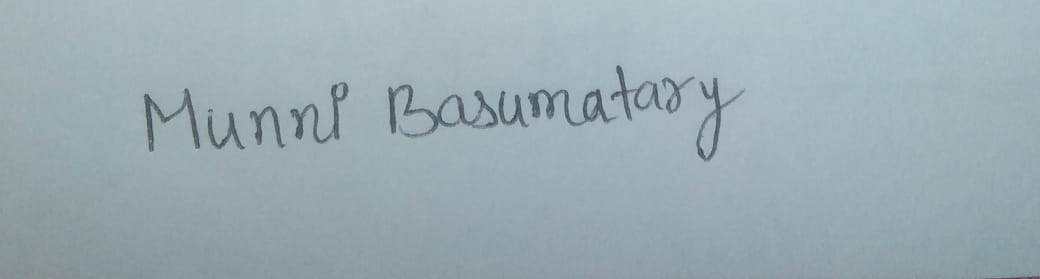 Munni Basumatary